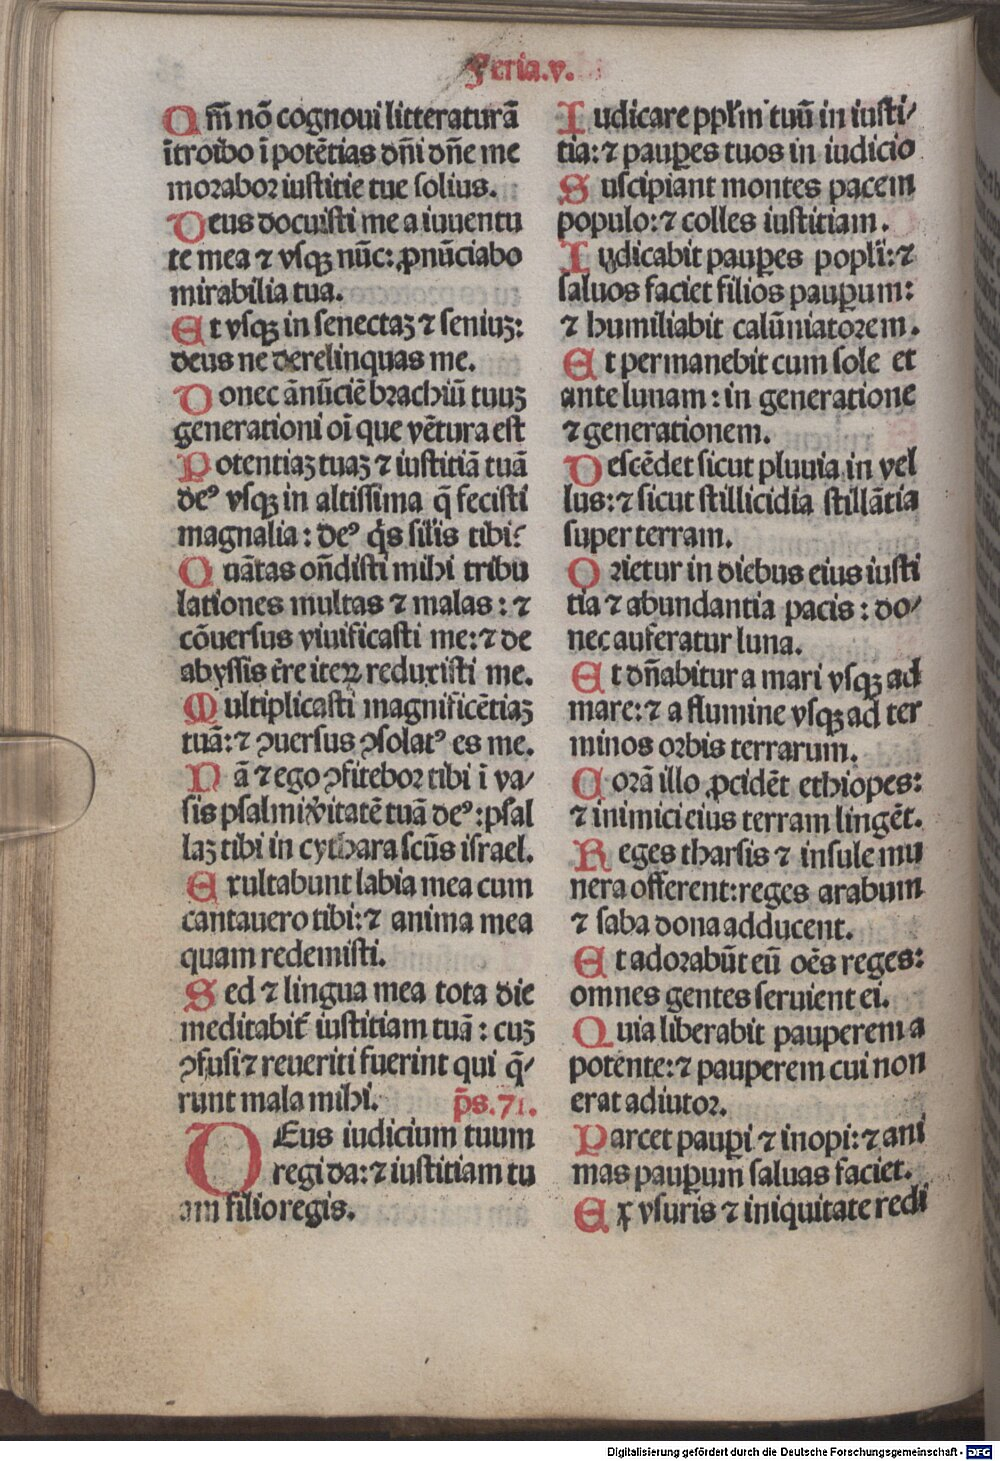 Feria.v.
Qm̄ nō cognoui litteraturā
ītroibo ī potētias dn̄i dn̄e me
morabor iustitie tue solius.
Deus docuisti me a iuuentu
te mea ⁊ vsqꝫ nūc: ꝓnūciabo
mirabilia tua.
Et vsqꝫ in senectaꝫ ⁊ seniuꝫ:
deus ne derelinquas me.
Donec ānūciē brachiū tuuꝫ
generationi oī que vētura est
Potentiaꝫ tuaꝫ ⁊ iustitiā tuā
deꝰ vsqꝫ in altissima q̄ fecisti
magnalia: deꝰ q̇s silis tibi?
Quātas on̄disti mihi tribu
lationes multas ⁊ malas: ⁊
cōuersus viuificasti me: ⁊ de
abyssis tr̄e iteꝝ reduxisti me.
Multiplicasti magnificētiaꝫ
tuā: ⁊ ꝯuersus ꝯsolatꝰ es me.
Nā ⁊ ego ꝯfitebor tibi ī va⸗
sis psalmi v̇itatē tuā deꝰ: psal
laꝫ tibi in cythara scūs israel.
Exultabunt labia mea cum
cantauero tibi: ⁊ anima mea
quam redemisti.
Sed ⁊ lingua mea tota die
meditabit̄ iustitiam tuā: cuꝫ
ꝯfusi ⁊ reueriti fuerint qui q̄⸗
runt mala mihi. p̄s. 71.
DEus iudicium tuum
regi da: ⁊ iustitiam tu
am filio regis.
Iudicare ppl'm tuū in iusti⸗
tia: ⁊ pauꝑes tuos in iudicio
Suscipiant montes pacem
populo: ⁊ colles iustitiam.
Iudicabit pauꝑes popli: ⁊
saluos faciet filios pauꝑum:
⁊ humiliabit calūniatorem.
Et permanebit cum sole et
ante lunam: in generatione
⁊ generationem.
Descēdet sicut pluuia in vel
lus: ⁊ sicut stillicidia stillātia
super terram.
Orietur in diebus eius iusti
tia ⁊ abundantia pacis: do⸗
nec auferatur luna.
Et dn̄abitur a mari vsqꝫ ad
mare: ⁊ a flumine vsqꝫ ad ter
minos orbis terrarum.
Corā illo ꝓcidēt ethiopes:
⁊ inimici eius terram lingēt.
Reges tharsis ⁊ insule mu
nera offerent: reges arabum
⁊ saba dona adducent.
Et adorabūt eū oēs reges:
omnes gentes seruient ei.
Quia liberabit pauperem a
potente: ⁊ pauperem cui non
erat adiutor.
Parcet pauꝑi ⁊ inopi: ⁊ ani
mas pauꝑum saluas faciet.
Ex vsuris ⁊ iniquitate redi
Digitalisierung gefördert durch die Deutsche Forschungsgemeinschaft - DFG